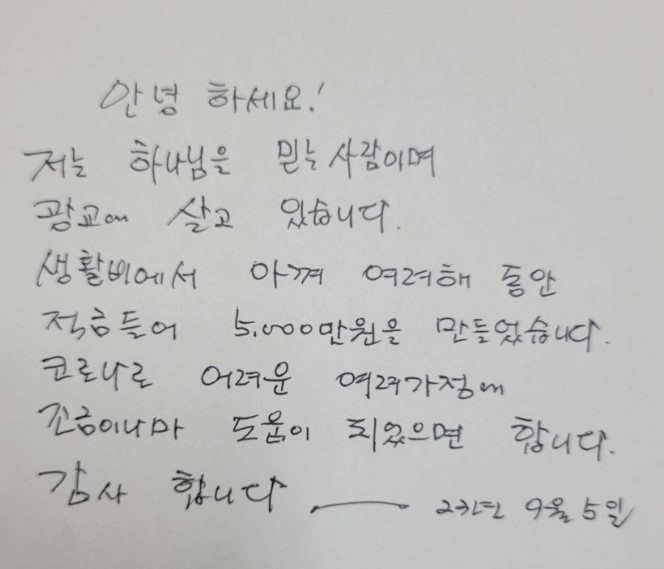 안녕 하세요!
저는 하나님을 믿는 사람이며
광교에 살고 있습니다.
생활비에서 아껴 여러해 동안
적금들어 5,000만원을 만들었습니다.
코로나로 어려운 여러가정에
조금이나마 도움이 되었으면 합니다.
감사 합니다 —— 23년 9월 5일